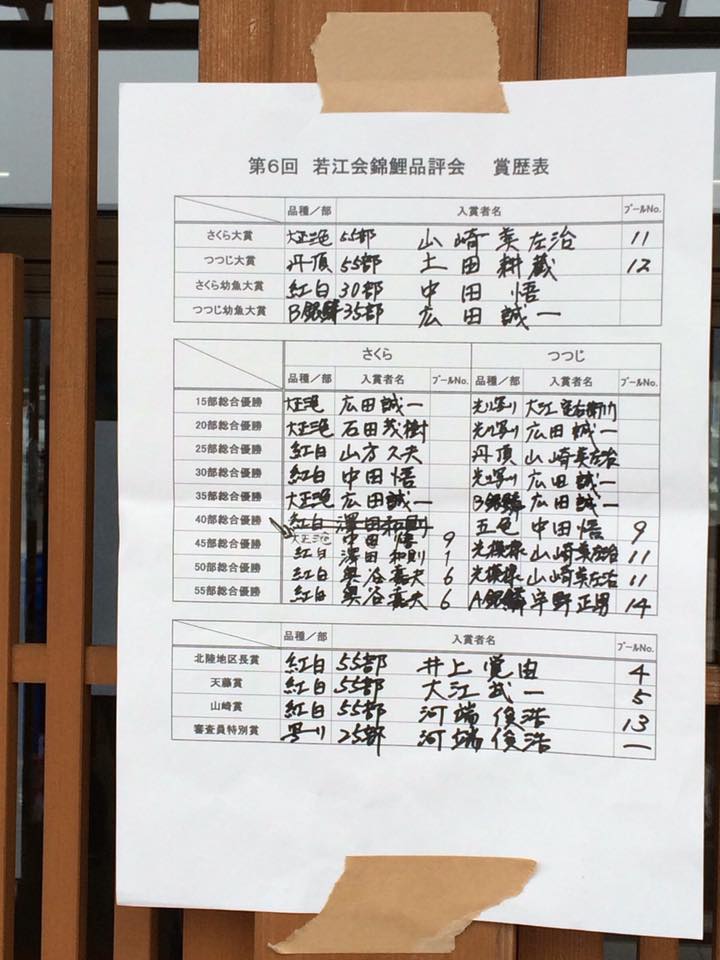 第6回 若江会錦鯉品評会 賞歴表
品種／部 入賞者名 プールNo.
さくら大賞 大正三色 55部 山崎英左治 11
つつじ大賞 丹頂 55部 土田耕蔵 12
さくら幼魚大賞 紅白 30部 中田悟
つつじ幼魚大賞 B銀鱗 35部 広田誠一
さくら つつじ
品種／部 入賞者名 プールNo. 品種／部 入賞者名 プールNo.
15部総合優勝 大正三色 広田誠一 光り写り 大江
20部総合優勝 大正三色 石田茂樹 光り写り 広田誠一
25部総合優勝 紅白 山方久夫 丹頂 山崎英左治
30部総合優勝 紅白 中田悟 光り写り 広田誠一
35部総合優勝 大正三色 広田誠一 B銀鱗 広田誠一
40部総合優勝 紅白 澤田和則 大正三色 中田悟 9 五色 中田悟 9
45部総合優勝 紅白 澤田和則 1 光模様 山崎英左治 11
50部総合優勝 紅白 奥谷嘉夫 6 光模様 山崎英左治 11
55部総合優勝 紅白 奥谷嘉夫 6 A銀鱗 宇野正男 14
品種／部 入賞者名 プールNo.
北陸地区長賞 紅白 55部 井上覚由 4
天藤賞 紅白 55部 大江武一 5
山崎賞 紅白 55部 河端俊浩 13
審査員特別賞 写り 25部 河端俊浩 ー